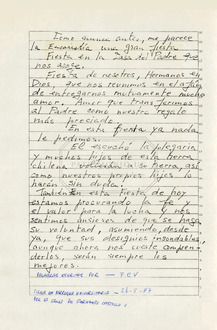 Como nunca antes, me parece
la Eucaristía una gran fiesta.
Fiesta en la Casa del Padre que
nos acoge.
Fiesta de nosotros, Hermanos en
Dios, que nos reunimos en el afán
de entregarnos mutuamente mucho
amor. Amor que transferimos
al Padre como nuestro regalo
más preciado.
En esta fiesta ya nada
le pedimos.
EL escuchó la plegaria
y muchos hijos de esta tierra
chilena a su tierra, así
como nuestros propios hijos lo
harán sin duda.
También en esta Fiesta de hoy
estamos procurando la fe y
el valor para la lucha y nos
sentimos ansiosos de que se haga
su voluntad, asumiendo, desde
ya, que sus designios insondables,
aunque ahora nos cueste compren-
derlos, serán siempre los
mejores.
POR
26-5-87
POR EL